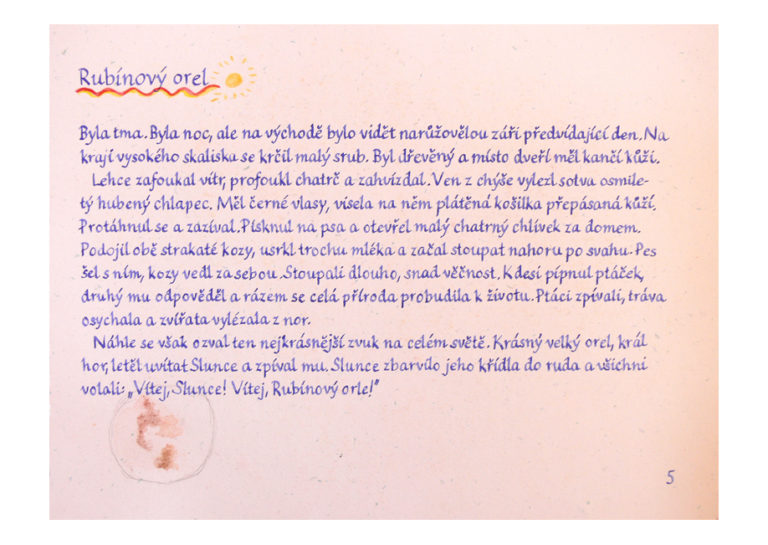 Rubínový orel
Byla tma. Byla noc, ale na východě bylo vidět narůžovělou záři předvídající den. Na
krají vysokého skaliska se krčil malý srub. Byl dřevěný a místo dveří měl kančí kůži.
Lehce zafoukal vítr, profoukl chatrč a zahvízdal. Ven z chýše vylezl sotva osmile-
tý hubený chlapec. Měl černé vlasy, visela na něm plátěná košilka přepásaná kůží.
Protáhnul se a zazíval. Písknul na psa a otevřel malý chatrný chlívek za domem.
Podojil obě strakaté kozy, usrkl trochu mléka a začal stoupat nahoru po svahu. Pes
šel s ním, kozy vedl za sebou. Stoupali dlouho, snad věčnost. Kdesi pípnul ptáček,
druhý mu odpověděl a rázem se celá příroda probudila k životu. Ptáci zpívali, tráva
osychala a zvířata vylézala z nor.
Náhle se však ozval ten nejkrásnější zvuk na celém světě. Krásný velký orel, král
hor, letěl uvítat Slunce a zpíval mu. Slunce zbarvilo jeho křídla do ruda a všichni
volali: „Vítej, Slunce! Vítej, Rubínový orle!"
5